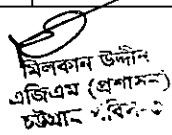 মিলকান উদ্দীন
এজিএম (প্রশাসন)
চট্টগ্রাম